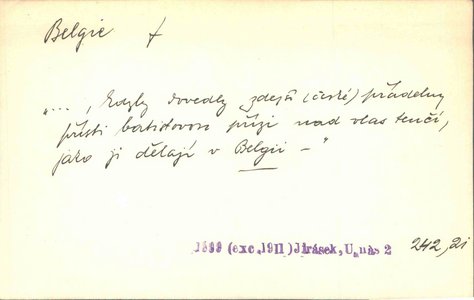 Belgie f
„..., kdyby dovedly zdejší (české) přádelny
přísti batistovou přízi nad vlas tenčí,
jako ji dělají v Belgii –"
1899 (exc. 1911) Jirásek, U nás 2 242, 2i